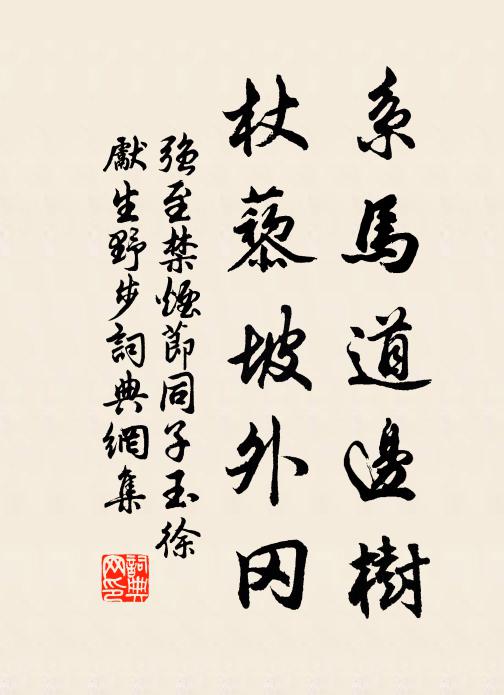 系馬道邊樹
杖藜坡外冈
強至禁煙節同子玉徐
獻生野步詞典網集
詞典
网印